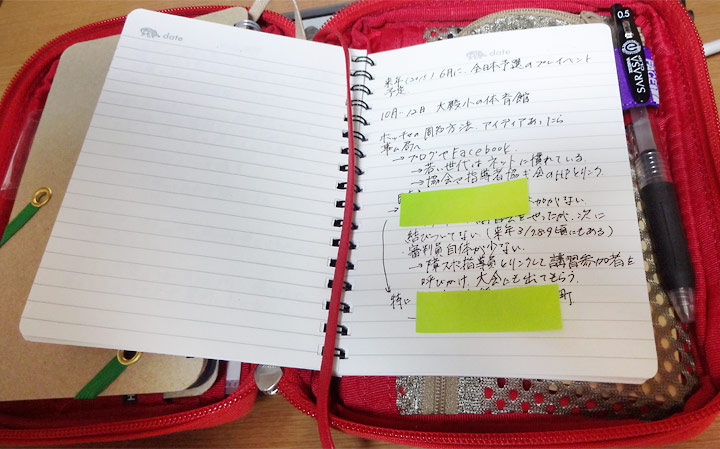 date
date
来年(2015)6月に、全日本予選のプレイベント
予定
10月〜12月 大殿小の体育館
ボッチャの周知方法、アイディアあったら
事ム局へ
→ブログやFacebook
→若い世代はネットに慣れている。
→協会や指導者協ギ会のHPとリンク。
がない
をやったが、次に
結びついてない(来年3/28.9頃にもある)
審判員自体が少ない。
→障スポ指導員とリンクして講習参加者を
呼びかけ、大会にも出てもらう。
特に
町
0.5
SARASA